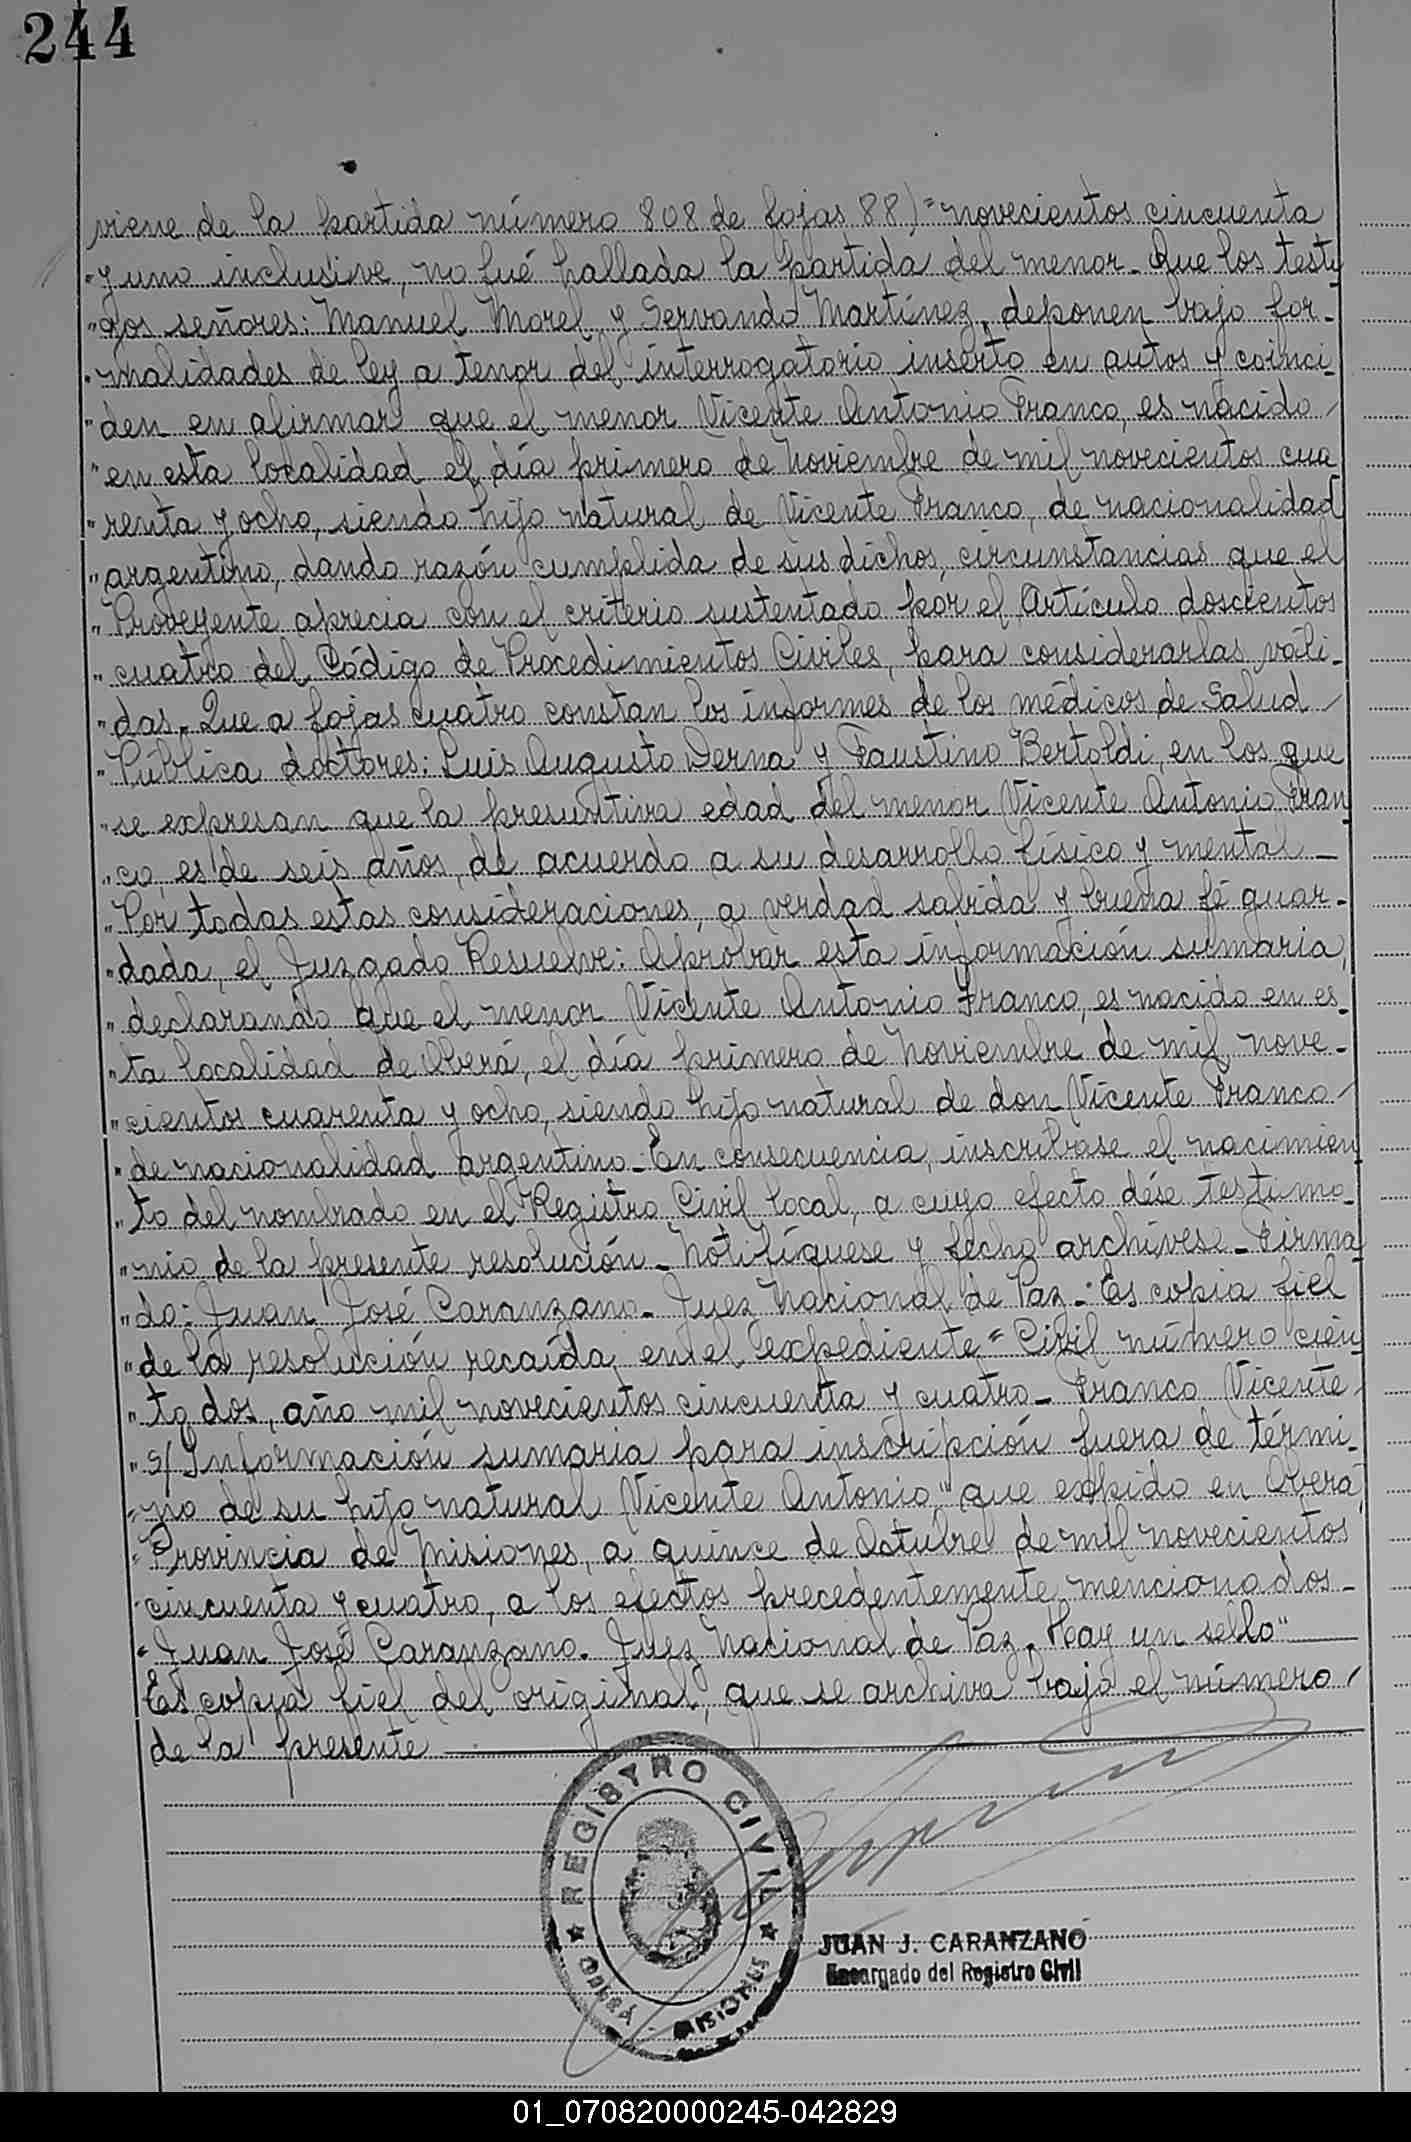 244
viene de la partida número 808 de fojas 88)="novecientos cincuenta
"y uno inclusive, no fué hallada la partida del menor_ Que los testi
"gos señores: Manuel Morel y Servando Martínez, deponen bajo for-
"malidades de ley a tenor del interrogatorio inserto en autos y coinci-
"den en afirmar que el menor Vicente Antonio Franco, es nacido
"en esta localidad el día primero de Noviembre de mil novecientos cua
"renta y ocho, siendo hijo natural de Vicente Franco, de nacionalidad
"argentino, dando razón cumplida de sus dichos, circunstancias que el
"Proveyente aprecia con el criterio sustentado por el Artículo doscientos
"cuatro del Código de Procedimientos Civiles, para considerarlas váli-
"das. Que a fojas cuatro constan los informes de los médicos de Salud
"Pública doctores: Luis Augusto Derna y Faustino Bertoldi, en los que
"se expresan que la presuntiva edad del menor Vicente Antonio Fran
"co, es de seis años, de acuerdo a su desarrollo físico y mental_
"Por todas estas consideraciones, a verdad sabida y buena fé guar-
"dada, el Juzgado Resuelve: Aprobar esta información sumaria,
"declarando que el menor Vicente Antonio Franco, es nacido en es-
"ta localidad de Oberá, el día primero de Noviembre de mil nove-
"cientos cuarenta y ocho, siendo hijo natural de don Vicente Franco
"de nacionalidad argentino_ En consecuencia, inscríbase el nacimien
"to del nombrado en el Registro Civil local, a cuyo efecto dése testimo-
"nio de la presente resolución_ Notifíquese y fecho archívese_ Firma
"do: Juan José Caranzano_ Juez Nacional de Paz_ Es copia fiel
"de la resolución recaída en el expediente "Civil número cien
"to dos, año mil novecientos cincuenta y cuatro_ Franco Vicente
"s/ Información sumaria para inscripción fuera de térmi-
"no de su hijo natural Vicente Antonio" que expido en Oberá
"Provincia de Misiones, a quince de Octubre de mil novecientos
"cincuenta y cuatro, a los efectos precedentemente mencionados_
"Juan José Caranzano. Juez Nacional de Paz. Hay un sello"
Es copia fiel del original, que se archiva bajo el número
de la presente
REGISTRO CIVIL
OBERÁ - MISIONES
JUAN J. CARANZANO
Encargado del Registro Civil
01_070820000245-042829